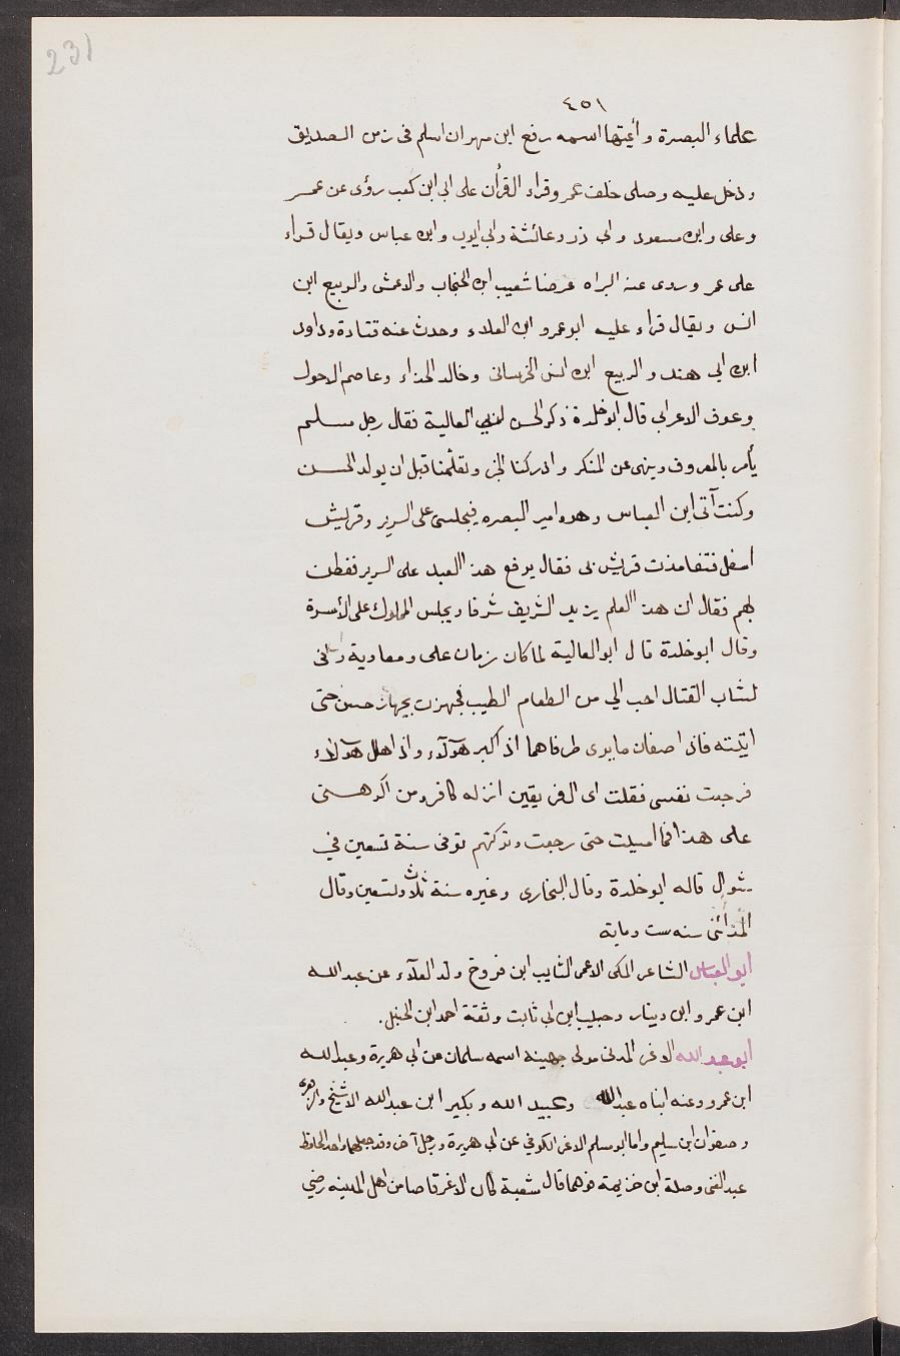 231
٤٥١
علماء البصرة وأئمتها اسمه رفع ابن مهران اسلم فى زمن الصديق
ودخل عليه وصلى خلف عمر وقراء القرأن على ابى ابن كعب رؤى عن عمر
وعلى وابن مسعود وابى ذر وعائشة وابى ايوب وابن عباس ويقال قراء
على عمر وروى عنه البراه عرضا شعيب ابن الحبحاب والاعمش والربيع ابن
انس ويقال قراء عليه ابو عمرو ابن العلاء وحدث عنه قتادة وداود
ابن ابى هند والربيع ابن انس الخرسانى وخالد الحذاء وعاصم الاحول
وعوف الاعرابى قال ابو خلدة ذكر الحسن لابى العالية فقال رجل مسلم
يأمر بالمعروف وينهى عن المنكر وادركنا الخير وتعلّمنا قبل ان يولد الحسن
وكنت آتى ابن العباس وهو امير البصره فيجلسنى على السرير وقريش
أسفل فتغامذت قريش بى فقال يرفع هذ العبد على السرير ففطن
لهم فقال ان هذ العلم يزيد الشريف شرفا ويجلس المملوك على الأسرة
وقال ابو خلدة قال ابو العالية لما كان زمان على ومعاوية وانى
لشاب القتال احب الي من الطعام الطيب فجهزت بجهاز حسن حتى
اتيته فاذا صفان ما يرى طرفاهما اذ اكبر هولآء واذا هلل هولآء
فرجعت نفسى فقلت اى الفريقين انزله كافر ومن اكرهنى
على هذا فما امسيت حتى رجعت وتركتهم توفى سنة تسعين في
شوال قاله ابو خلدة وقال البخارى وغيره سنة ثلاث وتسعين وقال
المدائنى سنه ست ومايه
أبو العباس الشاعر المكى الاعمى السايب ابن فروخ والد العلآء عن عبد الله
ابن عمر وابن دينار وحبيب ابن ابى ثابت وثقة احمد ابن الحنبل.
أبو عبد الله الاغر المدنى مولى جهينه اسمه سلمان عن ابى هريرة وعبد الله
ابن عمرو وعنه ابناه عبد الله وعبيد الله وبكير ابن عبد الله الاشيخ والزهرى
وصفوان ابن سليم واما ابو مسلم الاغر الكوفي عن ابى هريرة ورجل آخر وقد جعلهما واحد الحافظ
عبد الغنى وصلة ابن خزيمة فوهما قال شعبة كان الاغر قاصا من اهل المدينه رضي